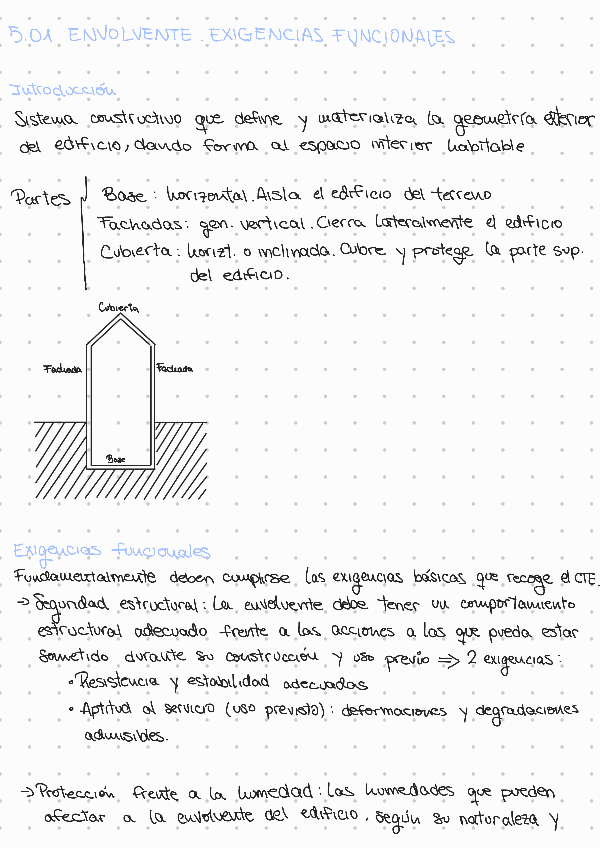 5.01 ENVOLVENTE. EXIGENCIAS FUNCIONALES
Introducción
Sistema constructivo que define y materializa la geometría exterior
del edificio, dando forma al espacio interior habitable
Partes
Base: horizontal. Aisla el edificio del terreno
Fachadas: gen. vertical. Cierra lateralmente el edificio
Cubierta: horizt. o inclinada. Cubre y protege la parte sup.
del edificio.
Cubierta
Fachada
Fachada
Base
Exigencias funcionales
Fundamentalmente deben cumplirse las exigencias básicas que recoge el CTE.
→ Seguridad estructural: La envolvente debe tener un comportamiento
estructural adecuado frente a las acciones a las que pueda estar
sometido durante su construcción y uso previo ⇒ 2 exigencias:
• Resistencia y estabilidad adecuadas
• Aptitud al servicio (uso previsto): deformaciones y degradaciones
admisibles.
→ Protección frente a la humedad: Las humedades que pueden
afectar a la envolvente del edificio, según su naturaleza y